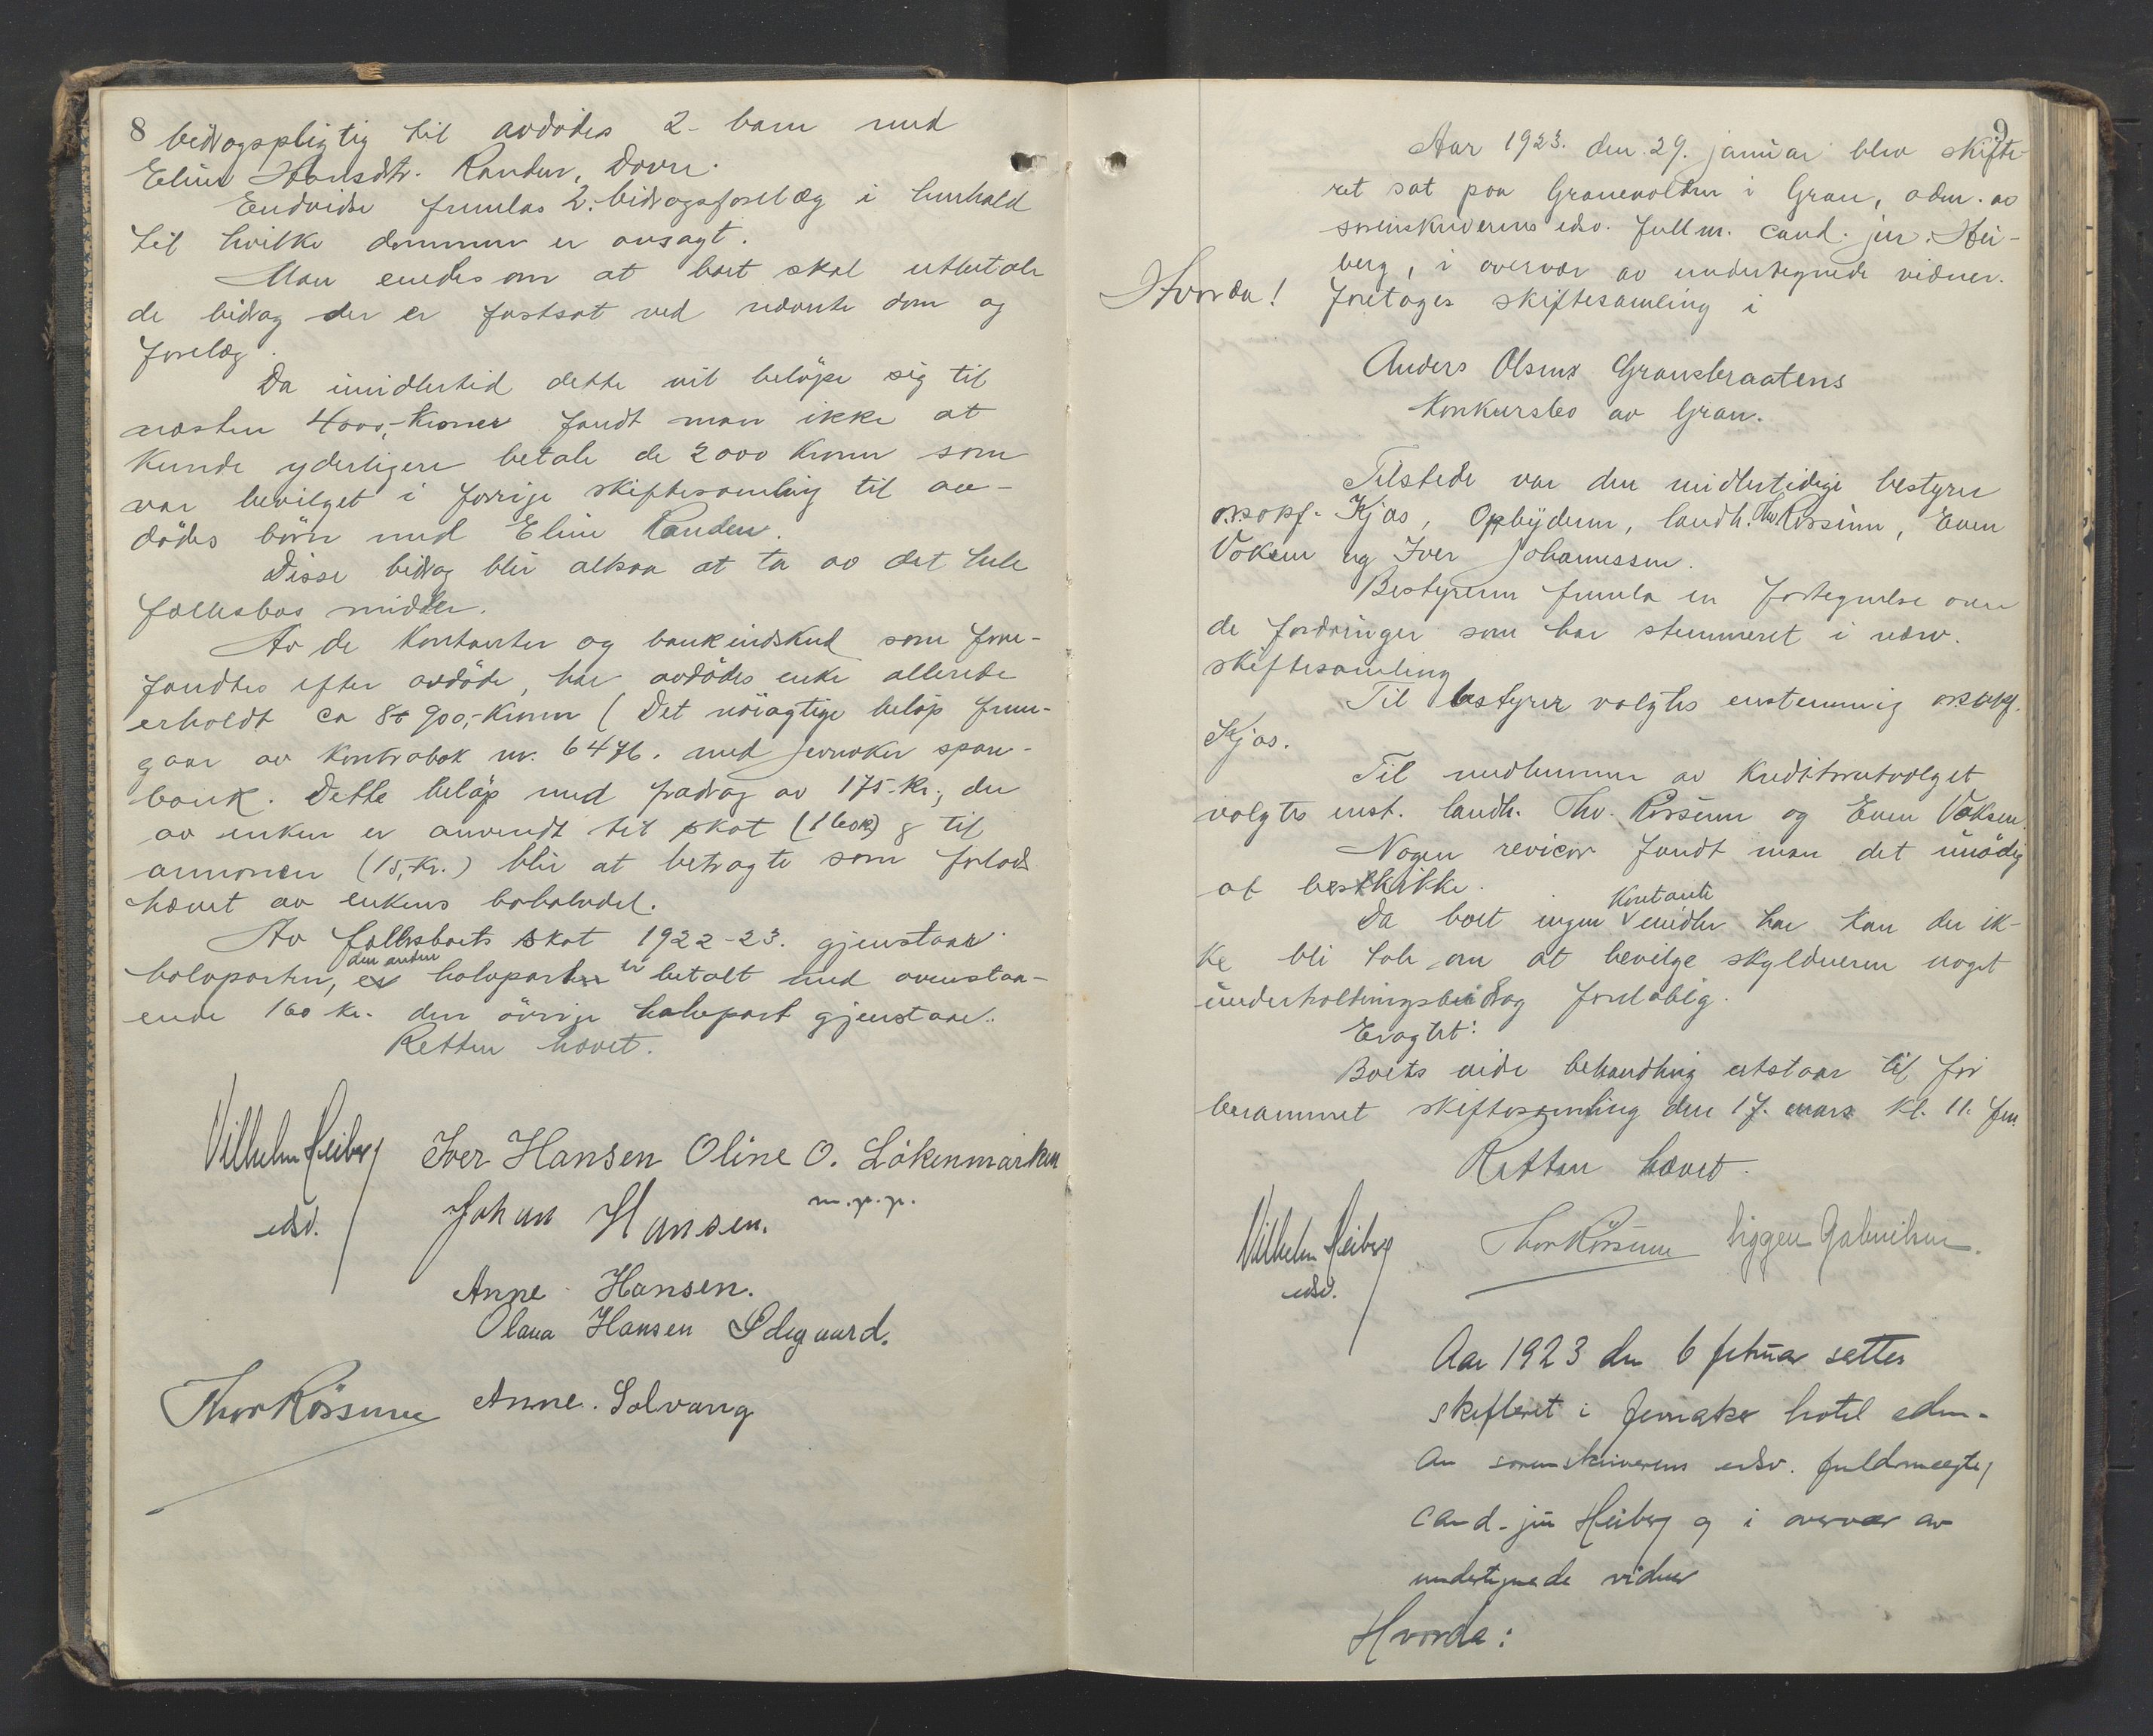 8
bidragspligtig til avdødes 2 barn med
Eline Hansdtr. Randen, Dovre.
Endvidre fremlas 2. bidragsforelæg i henhold
til hvilke dommen er avsagt.
Man enedes om at boet skal utbetale
de bidrag der er fastsat ved nævnte dom og
forelæg.
Da imidlertid dette vil beløpe sig til
næsten 4000,- kroner fandt man ikke at
kunde yderligere betale de 2000 kroner som
var bevilget i forrige skiftesamling til av-
dødes børn med Eline Randen.
Disse bidrag blir altsaa at ta av det hele
fællesbos midler.
Av de kontanter og bankindskud som fore-
fandtes efter avdøde, har avdødes enke allerede
erholdt ca 900,- kroner (Det nøiagtige beløp frem-
gaar av kontrabok nr. 6476. med Jevnaker spare-
bank. Dette beløp med fradrag av 175- kr., der
av enken er anvendt til skat (160 kr) & til
annoncen (15,- kr.) blir at betragte som forlods
hævet av enkens boholdet.
Av fællesboets skat 1922-23. gjenstaar
halvparten, den anden halvpart er betalt med ovenstaa-
ende 160 kr. den øvrige halvpart gjenstaar.
Retten hævet.
Vilhelm Heiberg
edsv.
Iver Hansen Oline O. Lökenmarken
m.p.p.
Johan Hansen.
Anne Hansen.
Olava Hansen Ødegaard.
Thor Røssum Anne. Solvang
9
Aar 1923. den 29. januar blev skifte-
ret sat paa Granevolden i Gran, adm. av
sorenskriverens edsv. fullm. cand. jur. Hei-
berg, i overvær av undertegnede vidner.
Hvorda! foretages skiftesamling i
Anders Olsens Gransbraatens
Konkursbo av Gran.
Tilstede var den midlertidige bestyrer
o.r.sakf. Kjos, Opbyderen, landh. Thv Røssum, Even
Voksen og Iver Johannessen.
Bestyreren fremla en fortegnelse over
de fordringer som har stemmeret i nærv.
skiftesamling
Til bestyrer valgtes enstemmig o.r.sakf.
Kjos.
Til medlemmer av kreditorutvalget
valgtes enst. landh. Thv. Røssum og Even Voksen.
Nogen revisor fandt man det unødig
at beskikke.
Da boet ingen kontante midler har kan der ik-
ke bli tale om at bevilge skyldneren noget
underholdningsbidrag foreløbig.
Eragtet:
Boets vide behandling utstaar til før
berammet skiftesamling den 17. mars kl. 11. fm
Retten hævet.
Vilhelm Heiberg
edsv.
Thor Røssum Sigger Gabrielsen.
Aar 1923 den 6 februar settes
skifteret i Jevnaker hotel adm.
av sorenskriverens edsv. fuldmægtig
cand. jur Heiberg og i overvær av
undertegnede vidner
Hvorda: